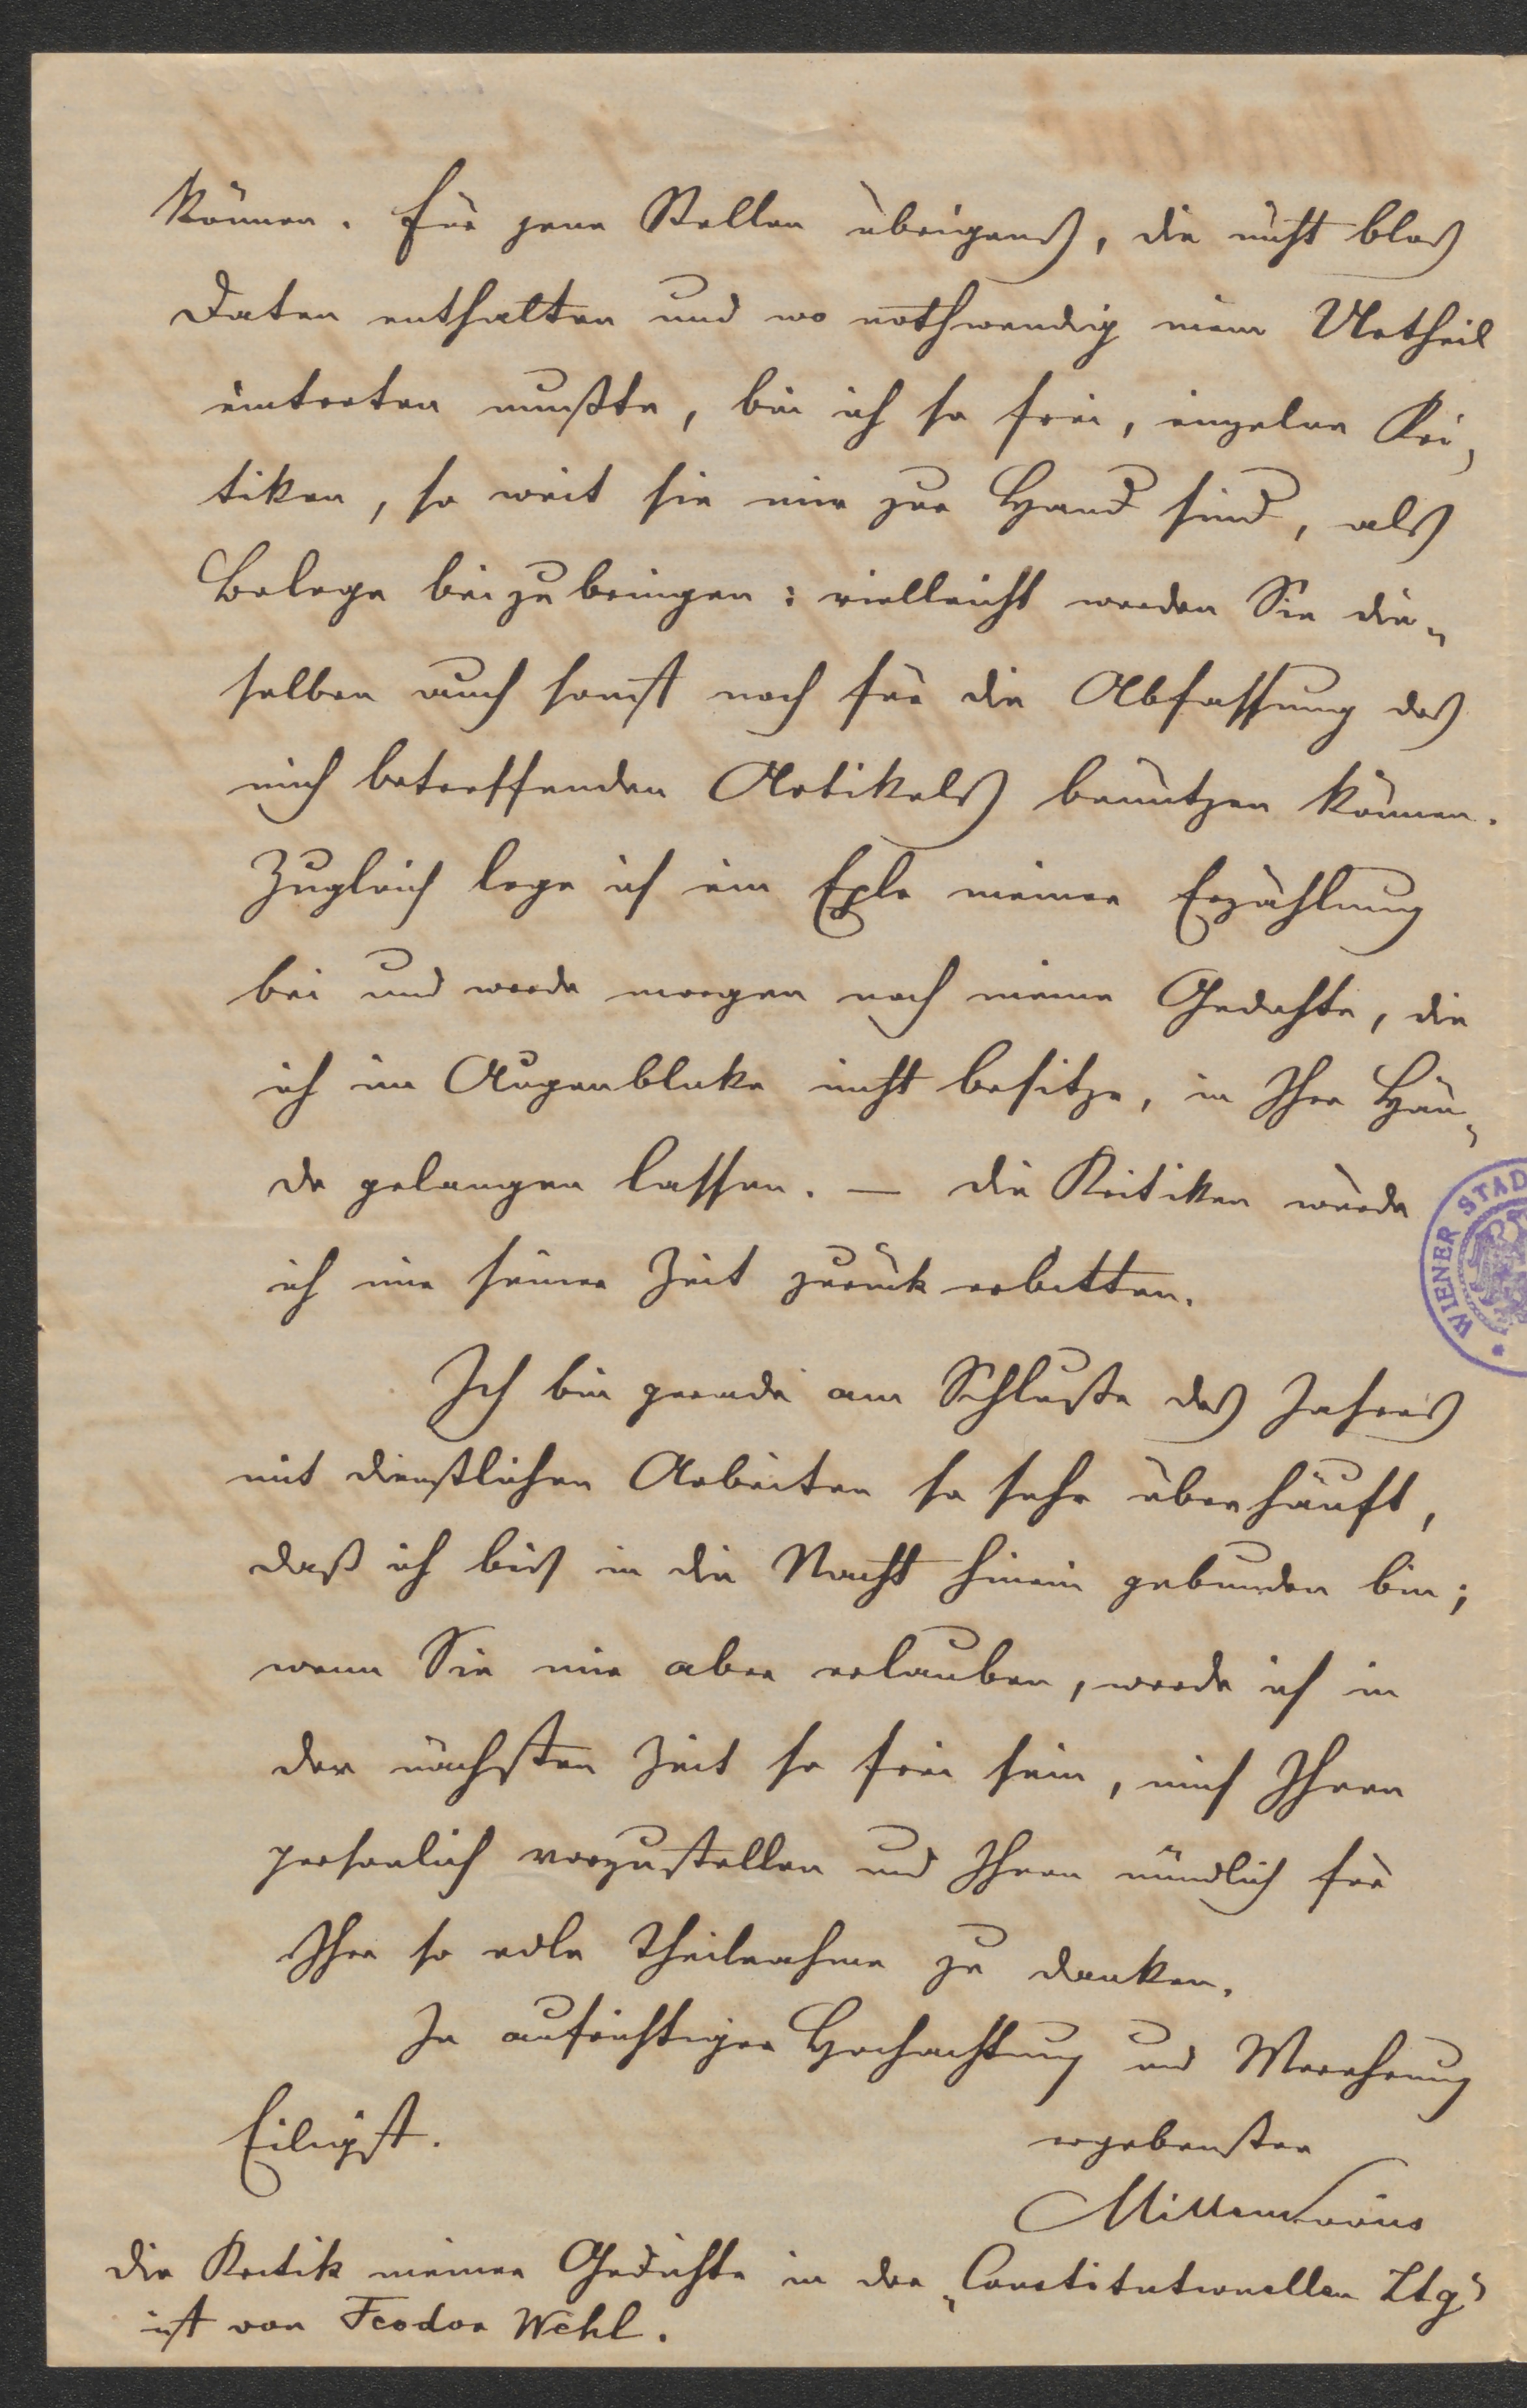 können. Für jene Stellen übrigens, die nicht blos
Daten enthalten und wo nothwendig mein Urtheil
eintreten mußte, bin ich so frei, einzelne Kri„
tiken, so weit sie mir zur Hand sind, als
Belege beizubringen: vielleicht werden Sie die„
selben auch sonst noch für die Abfassung des
mich betreffenden Artikels benützen können.
Zugleich lege ich ein Expl meiner Erzählung
bei und werde morgen noch meine Gedichte, die
ich im Augenblicke nicht besitze, in Ihre Hän„
de gelangen lassen. — Die Kritiken würde
ich mir seiner Zeit zurück erbitten.
Ich bin gerade am Schluße des Jahres
mit dienstlichen Arbeiten so sehr überhäuft,
daß ich bis in die Nacht hinein gebunden bin;
wenn Sie mir aber erlauben, werde ich in
der nächsten Zeit so frei sein, mich Ihnen
persönlich vorzustellen und Ihnen mündlich für
Ihre so edle Theilnahme zu danken.
In aufrichtiger Hochachtung und Verehrung
Eiligst.
ergebenster
Die Kritik meiner Gedichte in der „Constitutionellen Ztg“
ist von Feodor Wehl.
WIENER STAD